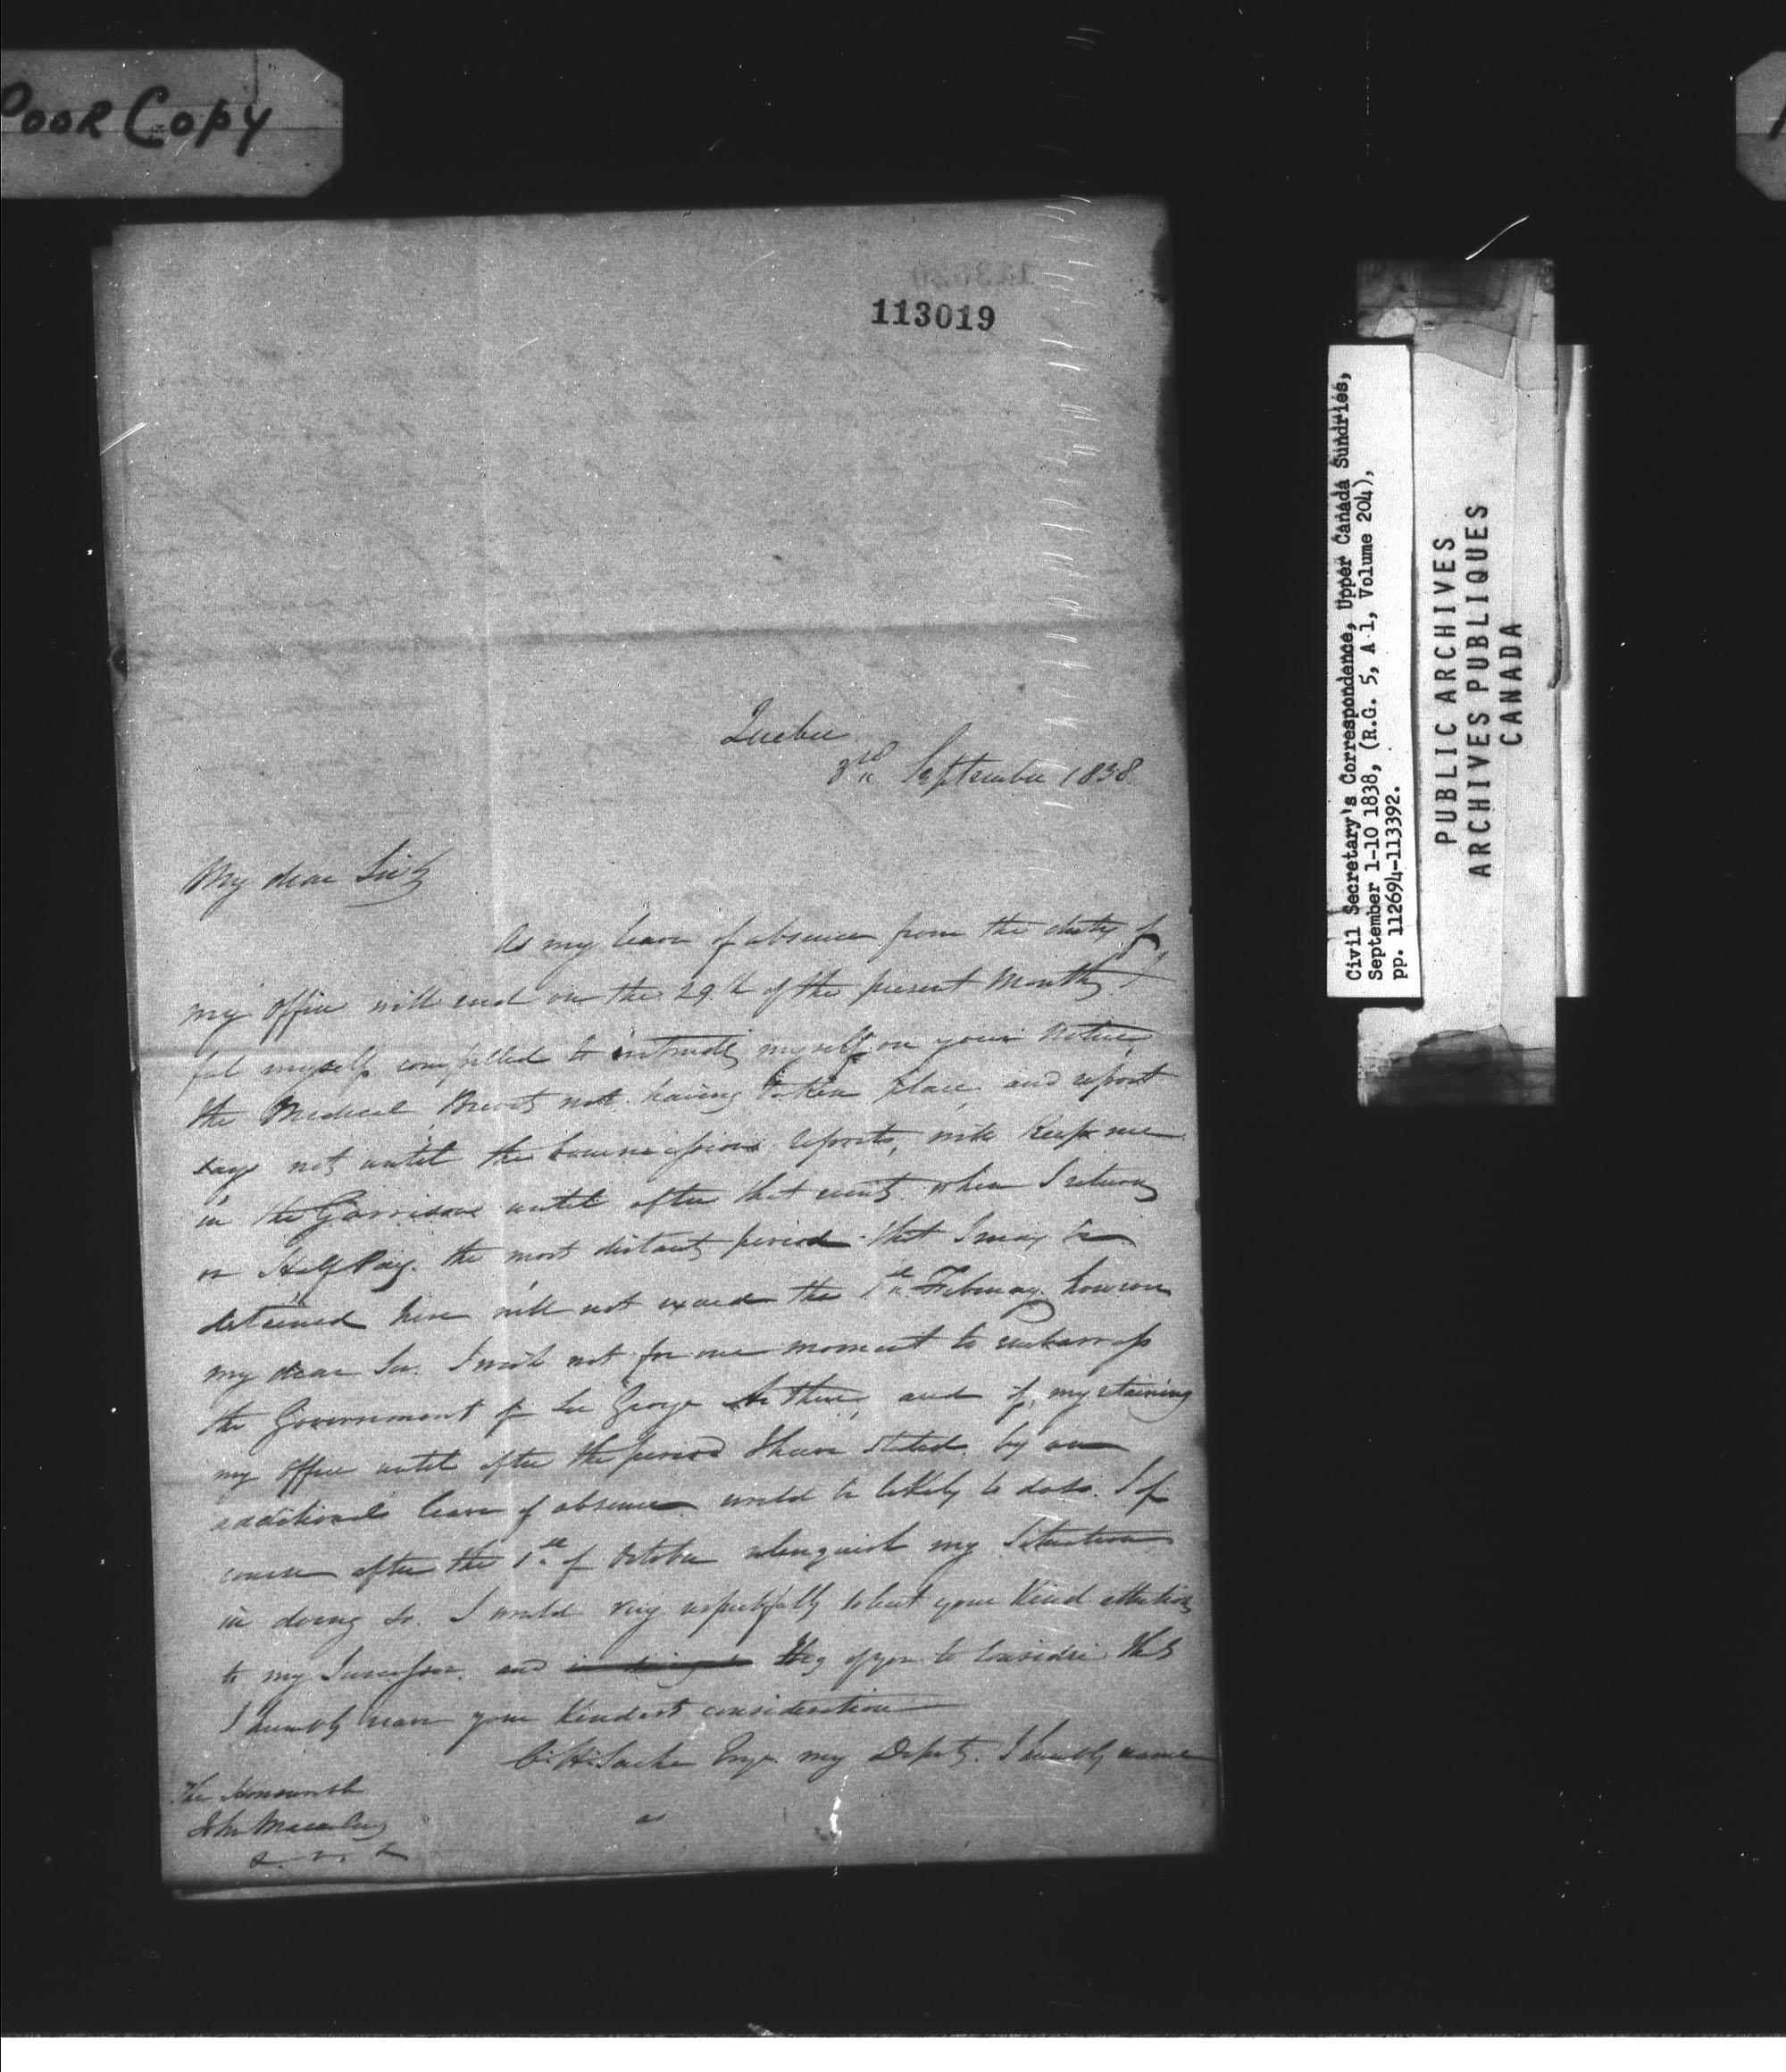 POOR COPY
113019
Quebec
3rd September 1838
My dear Sir
As my leave of absence from the duty of
my office will end on the 29th of the present Month I
feel myself compelled to intrude myself on your notice
the Medical not having taken place, and report
says not until the Commission reports, will keep me
in the Garrison until after that event when I return
on Half Pay. the most distant period that I may be
detained here will not exceed the 1st February. however
my dear Sir. I wish not for one moment to embarrass
the Government of Sir George Arthur, and if my retaining
my office until after the period I have stated by an
additional leave of absence would be likely to do so. I of
course after the 1st of October relinquish my Situation
in doing so. I would very respectfully solicit your Kind attention
to my Successor. and to consider that
I humbly crave your Kindest consideration
Esqr my Deputy. I humbly name
The Honourable
John Macaulay
&. &. &
as
Civil Secretary's Correspondence, Upper Canada Sundries,
September 1-10 1838, (R.G. 5, A 1, Volume 204),
pp. 112694-113392.
PUBLIC ARCHIVES
ARCHIVES PUBLIQUES
CANADA